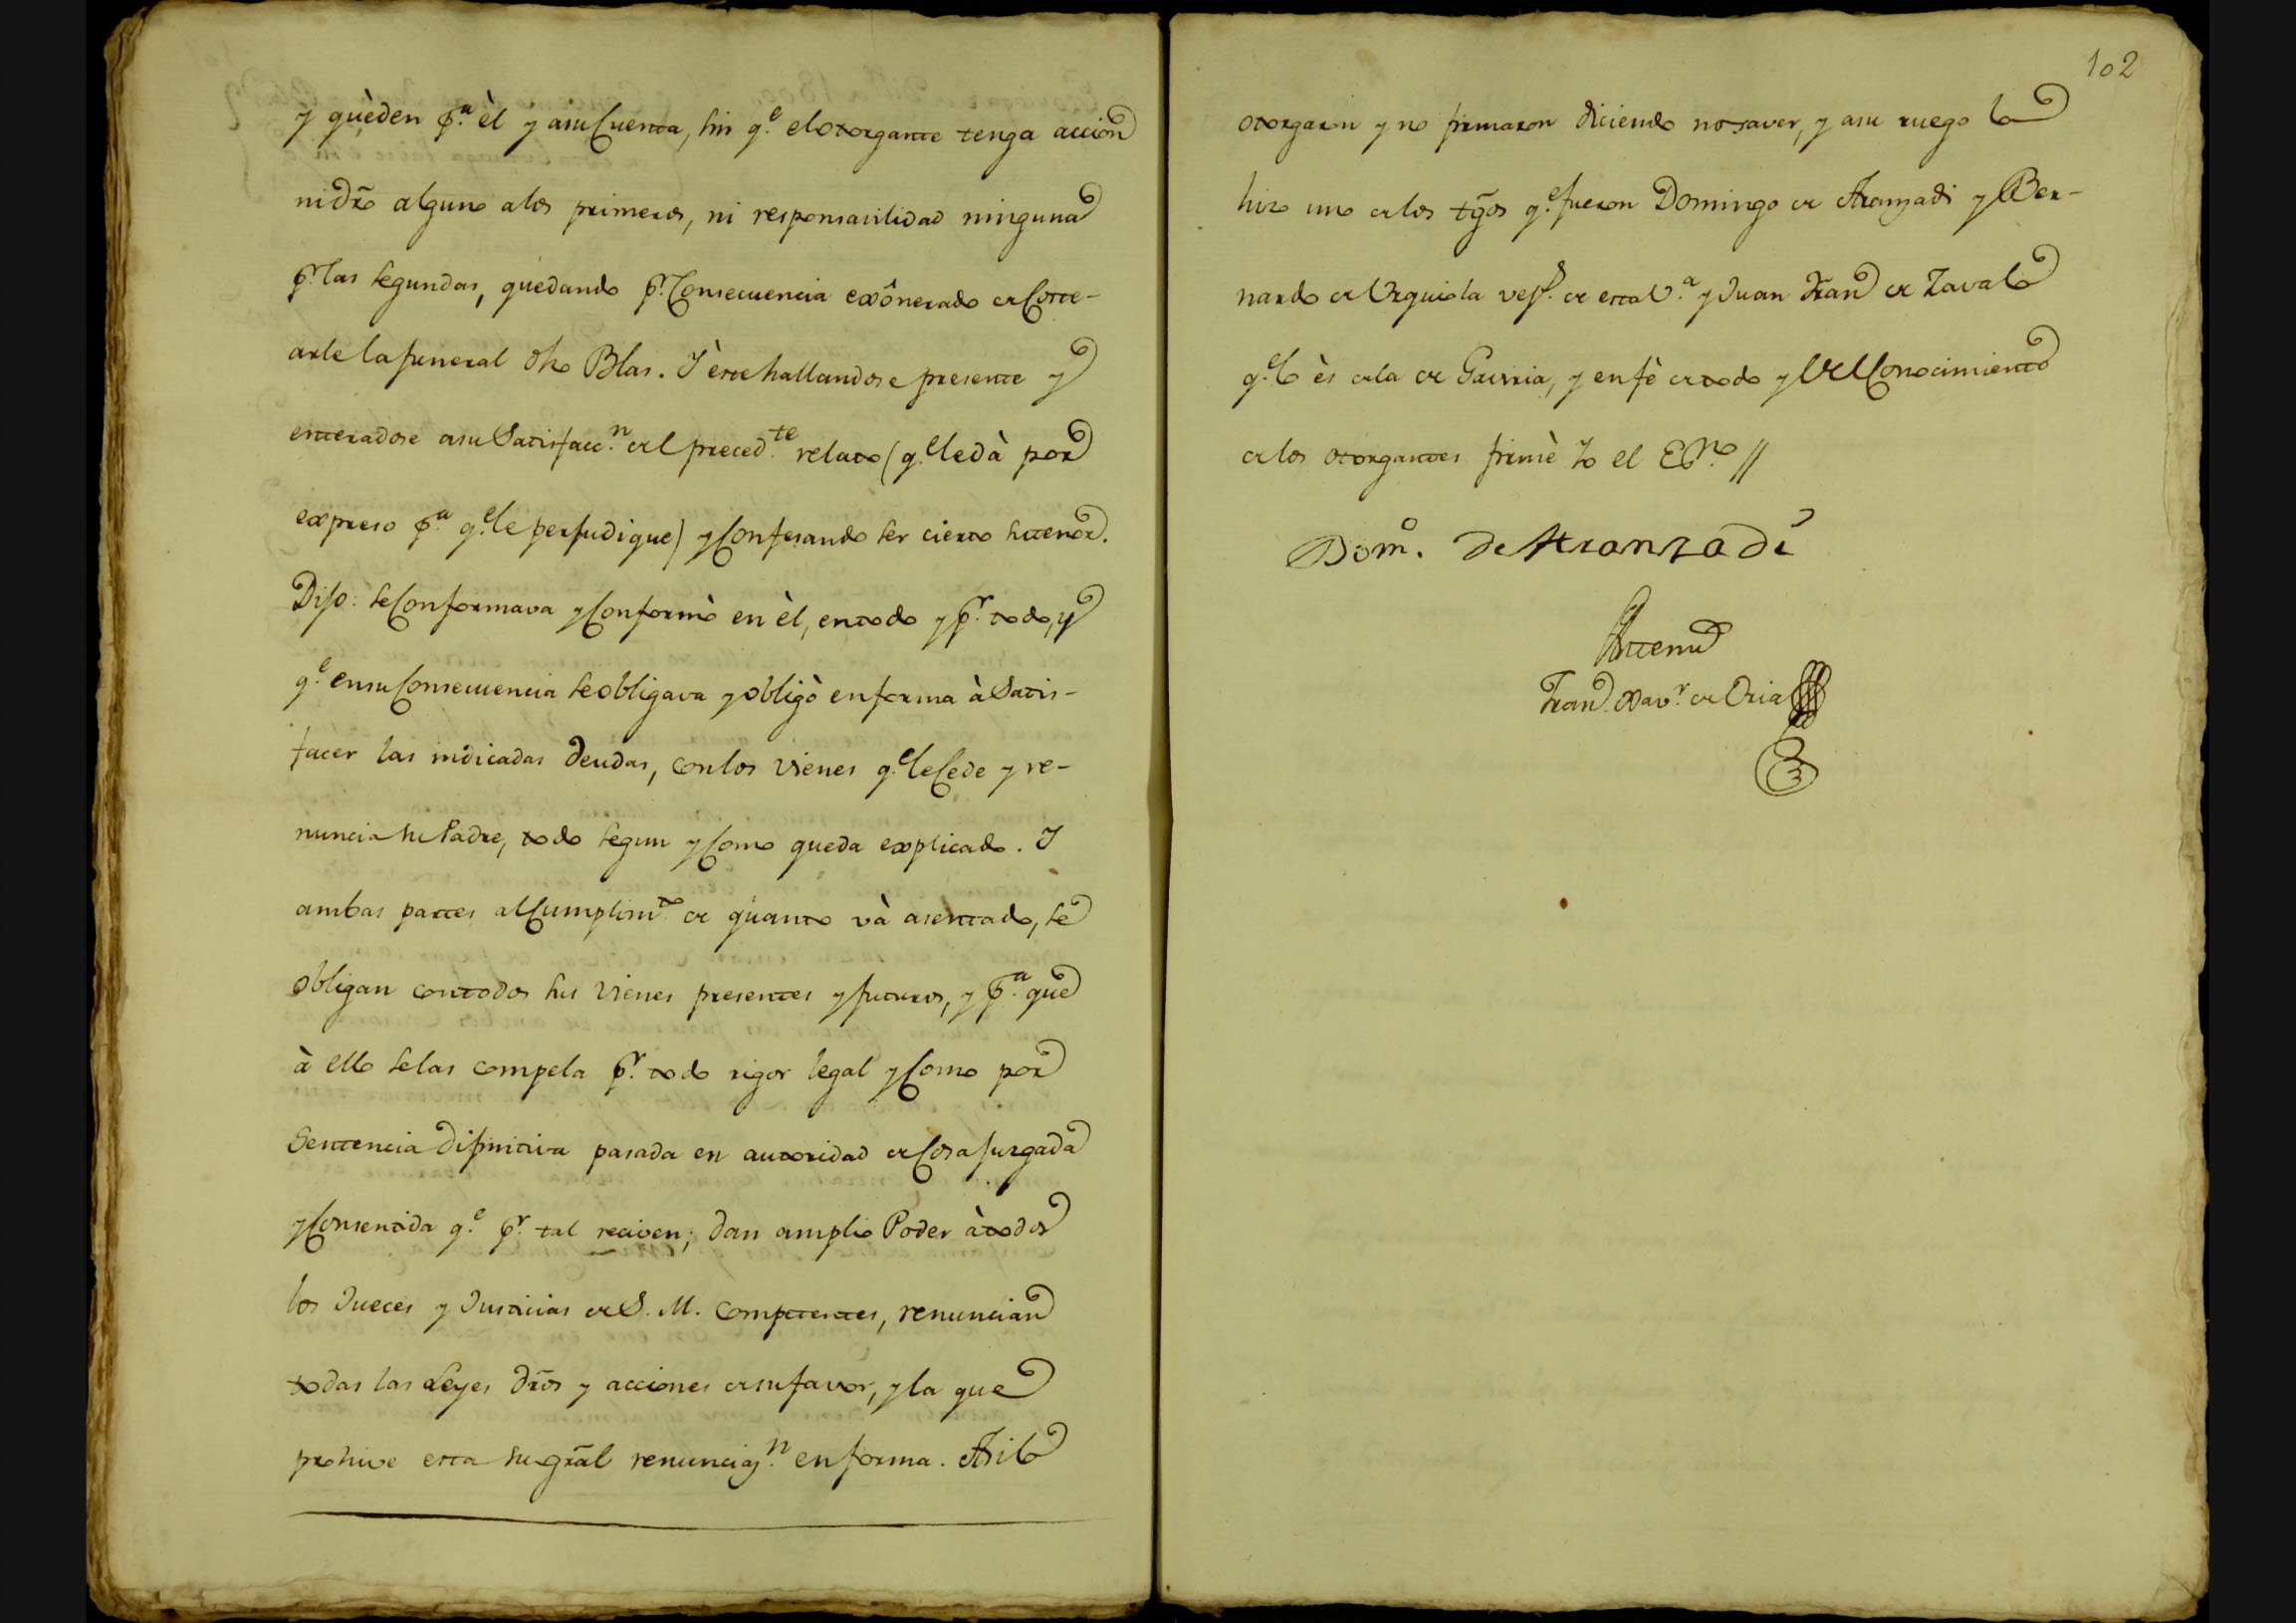 y quèden p.ª èl y asu Cuenta, sin q.e el otorgante tenga accion
ni dr̃o alguno alos primeros, ni responsavilidad ninguna
p.r las segundas, quedando p.r Consecuencia exônerado de Coste-
arle la funeral dho Blas. Y èste hallandose presente y
enteradose asu Satisfacc.n del preced.te relato (q.e le dà por
expreso p.ª q.e le perjudique) y Confesando ser cierto su tenor.
Dijo: se Conformava y Conformò en èl, en todo y p.r todo, y
q.e en su Consecuencia se obligava y obligò en forma à Satis-
facer las indicadas deudas, con los vienes q.e le Cede y re-
nuncia su Padre, todo segun y Como queda explicado. Y
ambas partes al Cumplim.to de quanto và asentado, se
obligan con todos sus vienes presentes y futuros, y p.ª que
à ello se las compela p.r todo rigor legal y Como por
Sentencia difinitiva pasada en autoridad de Cosa juzgada
y Consentida q.e p.r tal reciven; dan amplio Poder à todos
los Jueces y Justicias de S. M. competentes, renuncian
todas las Leyes dr̃os y acciones de su favor, y la que
prohive esta su gr̃al renunciaz.n en forma. Asi lo
102
otorgaron y no firmaron diciendo no saver, y asu ruego lo
hizo uno de los tg̃os q.e fueron Domingo de Aranzadi y Ber-
nardo de Urquiola vez.s de esta V.ª y Juan Fran.co de Zavala
q.e lo ès de la de Gaviria, y en fè de todo y del Conocimiento
de los otorgantes firmè Yo el Ess.no //
Dom.o de Aranzadi
Antemi
Fran.co Xav.r de Oria